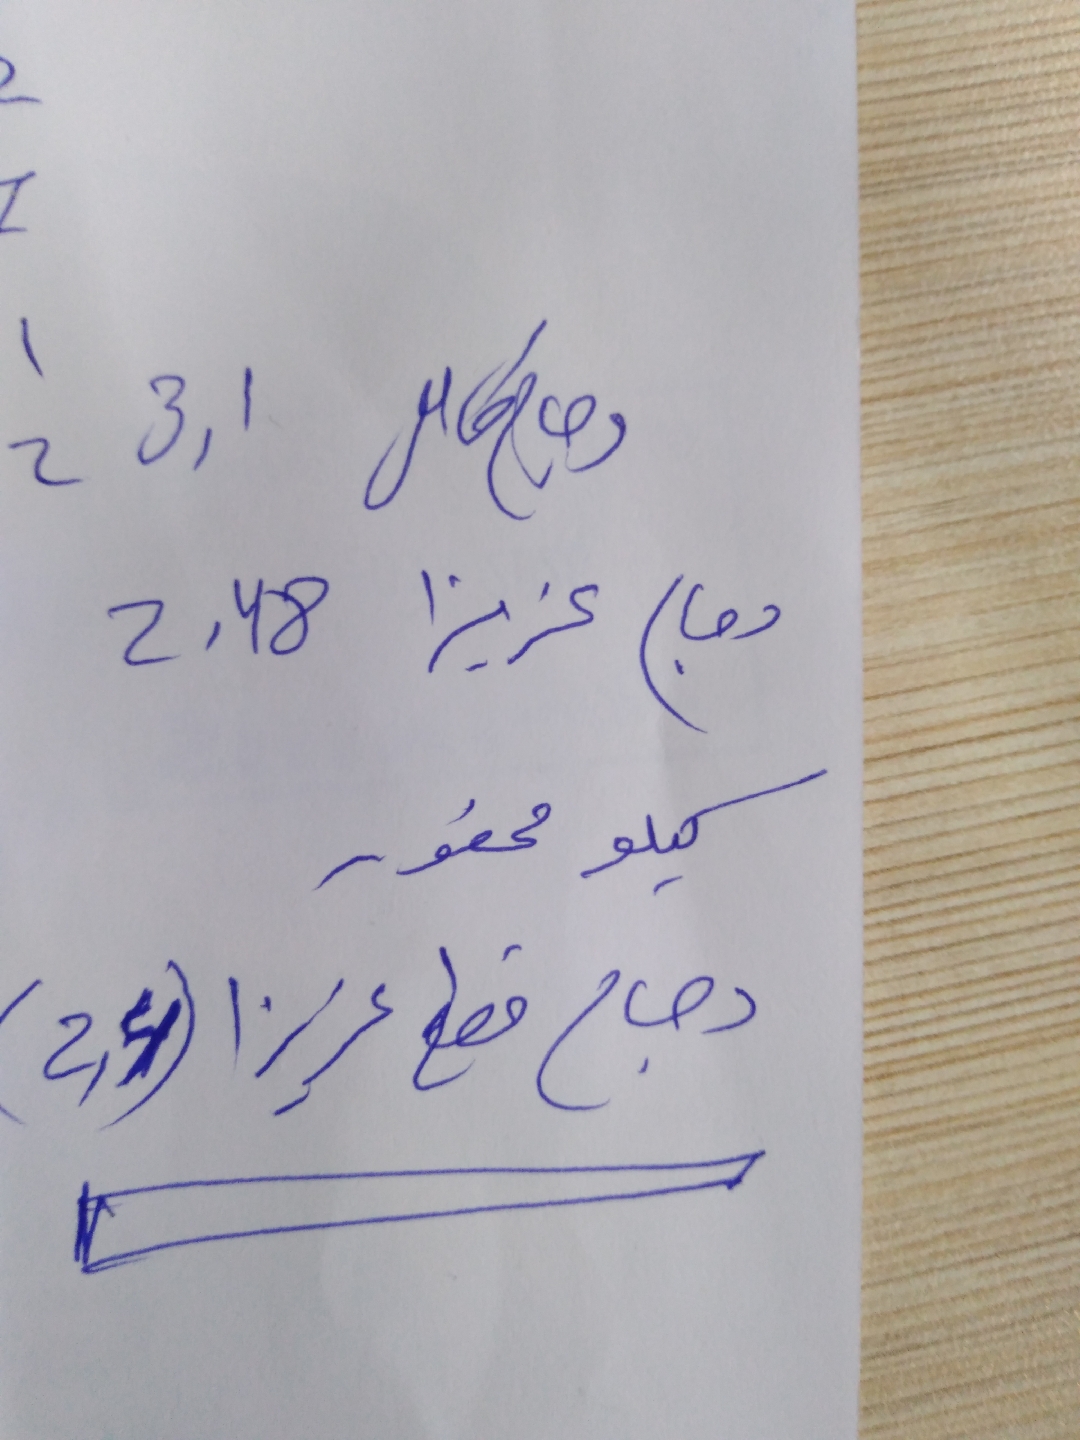 2
1
دجاج كامل 3,1 1 2
دجاج عزيزا 2,48
كيلو محفور
دجاج قطع عزيزا (2,4)